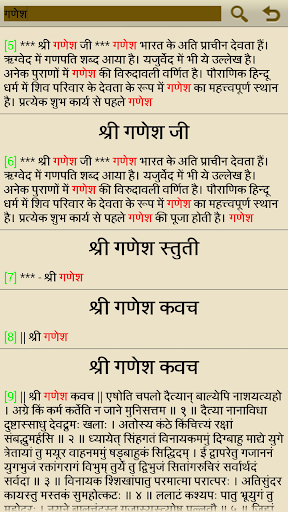 गणेश
[5] *** श्री गणेश जी *** गणेश भारत के अति प्राचीन देवता हैं।
ऋग्वेद में गणपति शब्द आया है। यजुर्वेद में भी ये उल्लेख है।
अनेक पुराणों में गणेश की विरुदावली वर्णित है। पौराणिक हिन्दू
धर्म में शिव परिवार के देवता के रूप में गणेश का महत्त्वपूर्ण स्थान
है। प्रत्येक शुभ कार्य से पहले गणेश
श्री गणेश जी
[6] *** श्री गणेश जी *** गणेश भारत के अति प्राचीन देवता हैं।
ऋग्वेद में गणपति शब्द आया है। यजुर्वेद में भी ये उल्लेख है।
अनेक पुराणों में गणेश की विरुदावली वर्णित है। पौराणिक हिन्दू
धर्म में शिव परिवार के देवता के रूप में गणेश का महत्त्वपूर्ण स्थान
है। प्रत्येक शुभ कार्य से पहले गणेश की पूजा होती है। गणेश
श्री गणेश स्तुती
[7] *** - श्री गणेश
श्री गणेश कवच
[8] || श्री गणेश
श्री गणेश कवच
[9] || श्री गणेश कवच || एषोति चपलो दैत्यान् बाल्येपि नाशयत्यहो
। अग्रे किं कर्म कर्तेति न जाने मुनिसत्तम ॥ १ ॥ दैत्या नानाविधा
दुष्टास्साधु देवद्रुमः खलाः । अतोस्य कंठे किंचित्त्यं रक्षां
संबद्धुमर्हसि ॥ २ ॥ ध्यायेत् सिंहगतं विनायकममुं दिग्बाहु माद्ये युगे
त्रेतायां तु मयूर वाहनममुं षड्बाहुकं सिद्धिदम् । ई द्वापरेतु गजाननं
युगभुजं रक्तांगरागं विभुम् तुर्ये तु द्विभुजं सितांगरुचिरं सर्वार्थदं
सर्वदा ॥ ३ ॥ विनायक श्शिखांपातु परमात्मा परात्परः । अतिसुंदर
कायस्तु मस्तकं सुमहोत्कटः ॥ ४ ॥ ललाटं कश्यपः पातु भ्रूयुगं तु